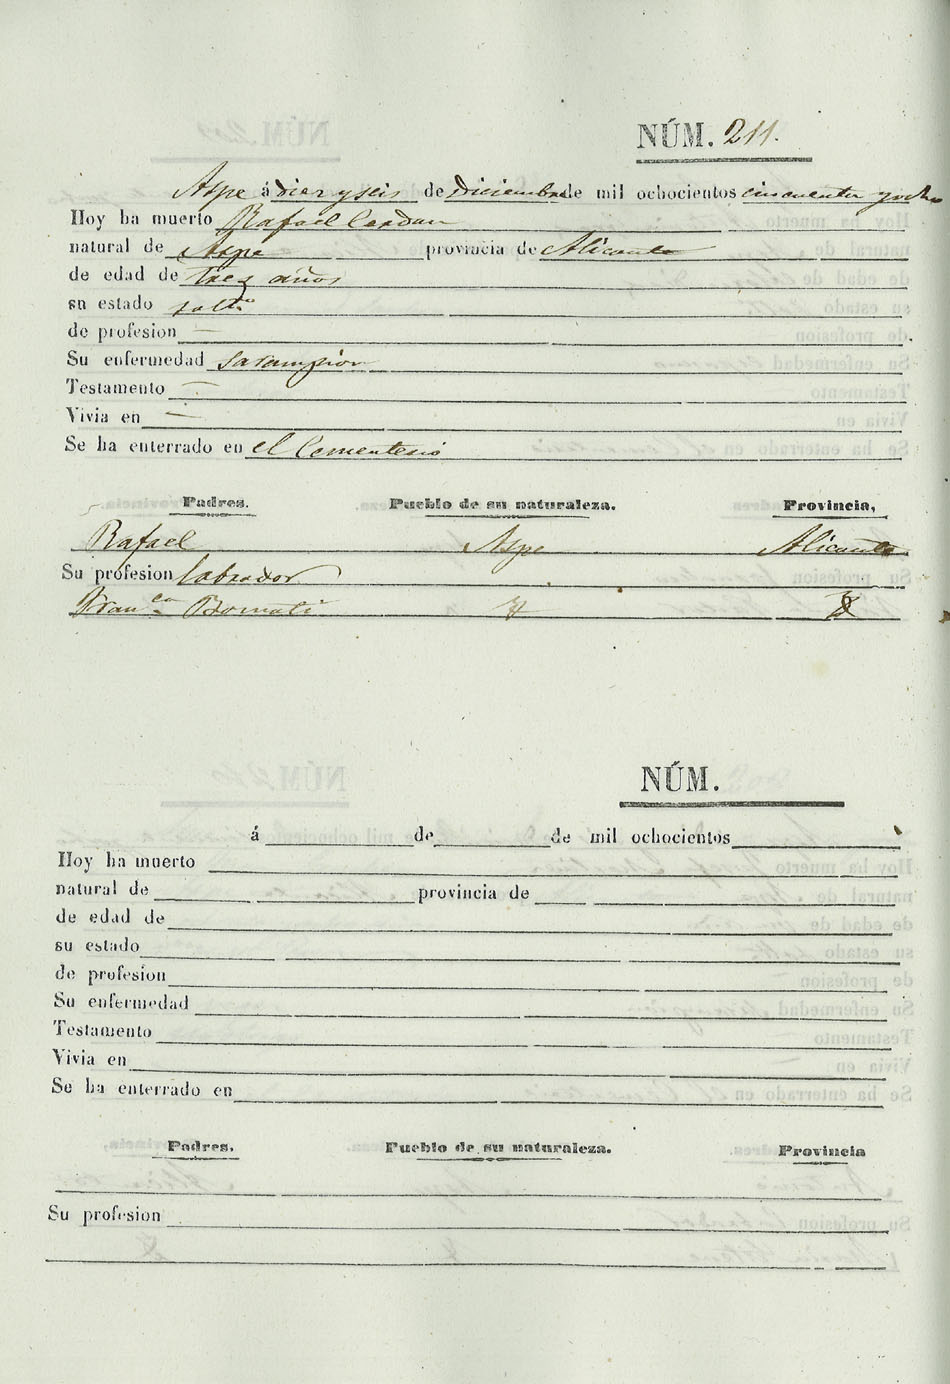 NÚM. 211.
Aspe á diez y seis de diciembre de mil ochocientos cincuenta y ocho
Hoy ha muerto Rafael
natural de Aspe provincia de Alicante
de edad de tres años
su estado solt.o
de profesion —
Su enfermedad sarampion
Testamento —
Vivia en —
Se ha enterrado en el Cementerio
Padres. Pueblo de su naturaleza. Provincia,
Rafael Aspe Alicante
Su profesion labrador
Fran.ca
NÚM.
á de de mil ochocientos
Hoy ha muerto
natural de provincia de
de edad de
su estado
de profesion
Su enfermedad
Testamento
Vivia en
Se ha enterrado en
Padres. Pueblo de su naturaleza. Provincia
Su profesion